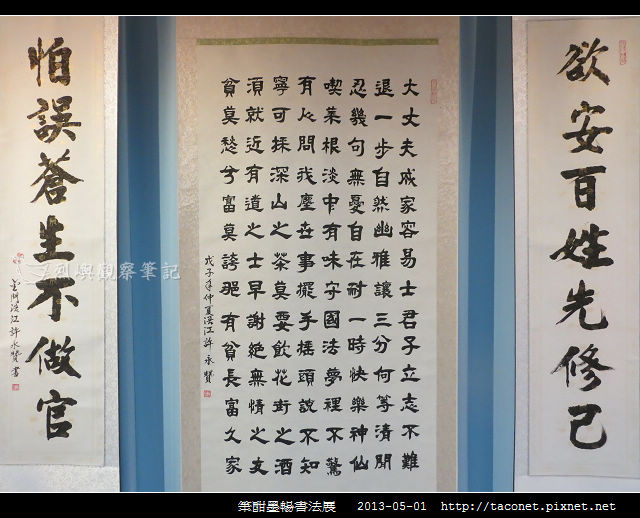 欲安百姓先修己
大丈夫成家容易士君子立志不難
退一步自然幽雅讓三分何等清閒
忍幾句無憂自在耐一時快樂神仙
喫菜根淡中有味守國法夢裡不驚
有人問我塵世事擺手搖頭說不知
寧可採深山之茶莫要飲花街之酒
須就近有道之士早謝絕無情之友
貧莫愁兮富莫誇那有貧長富久家
戊子年仲夏浯江許承贊
怕誤蒼生不做官
金門浯江許承贊書
烈嶼觀察筆記
筆酣墨暢書法展 2013-05-01 http://taconet.pixnet.net